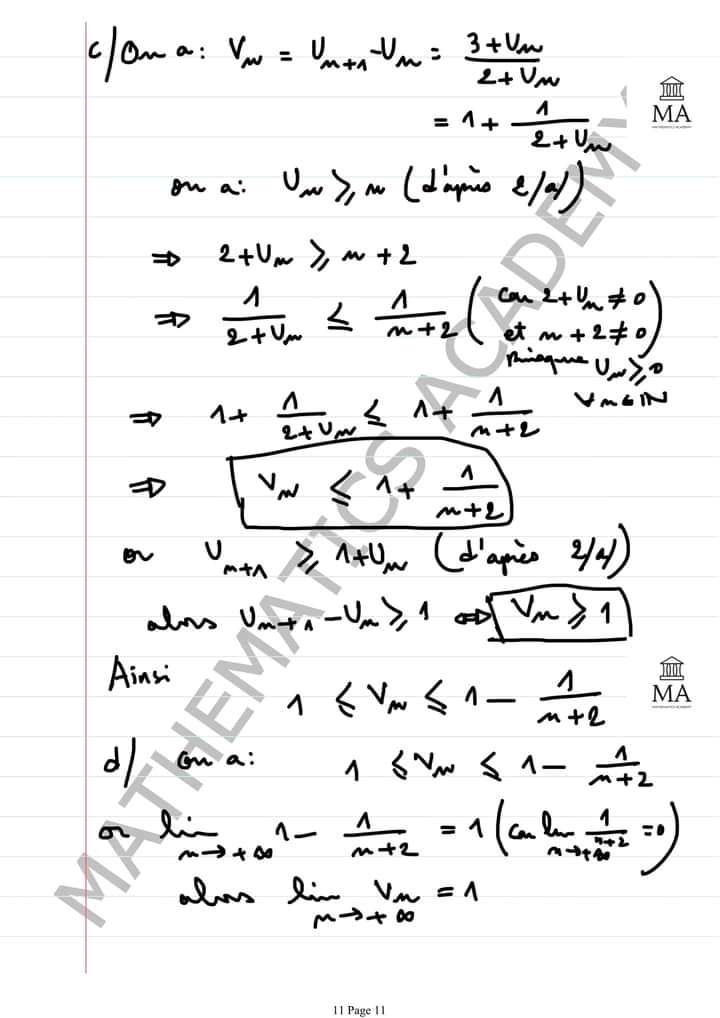 c/ On a : Vₙ = Uₙ₊₁ - Uₙ = (3 + Uₙ)/(2 + Uₙ)
MA
= 1 + 1/(2 + Uₙ)
on a : Uₙ ⩾ n (d'après 2/a/)
⇒ 2 + Uₙ ⩾ n + 2
⇒ 1/(2 + Uₙ) ≤ 1/(n + 2) (car 2 + Uₙ ≠ 0
et n + 2 ≠ 0)
puisque Uₙ ⩾ 0
∀ n ∈ IN
⇒ 1 + 1/(2 + Uₙ) ≤ 1 + 1/(n + 2)
⇒ Vₙ ≤ 1 + 1/(n + 2)
or Uₙ₊₁ ⩾ 1 + Uₙ (d'après 2/a/)
alors Uₙ₊₁ - Uₙ ⩾ 1 ⇔ Vₙ ⩾ 1
Ainsi
MA
1 ≤ Vₙ ≤ 1 - 1/(n + 2)
d/ on a : 1 ≤ Vₙ ≤ 1 - 1/(n + 2)
or lim n→+∞ 1 - 1/(n + 2) = 1 (car lim n→+∞ 1/(n + 2) = 0)
alors lim n→+∞ Vₙ = 1
MATHEMATICS ACADEMY
11 Page 11